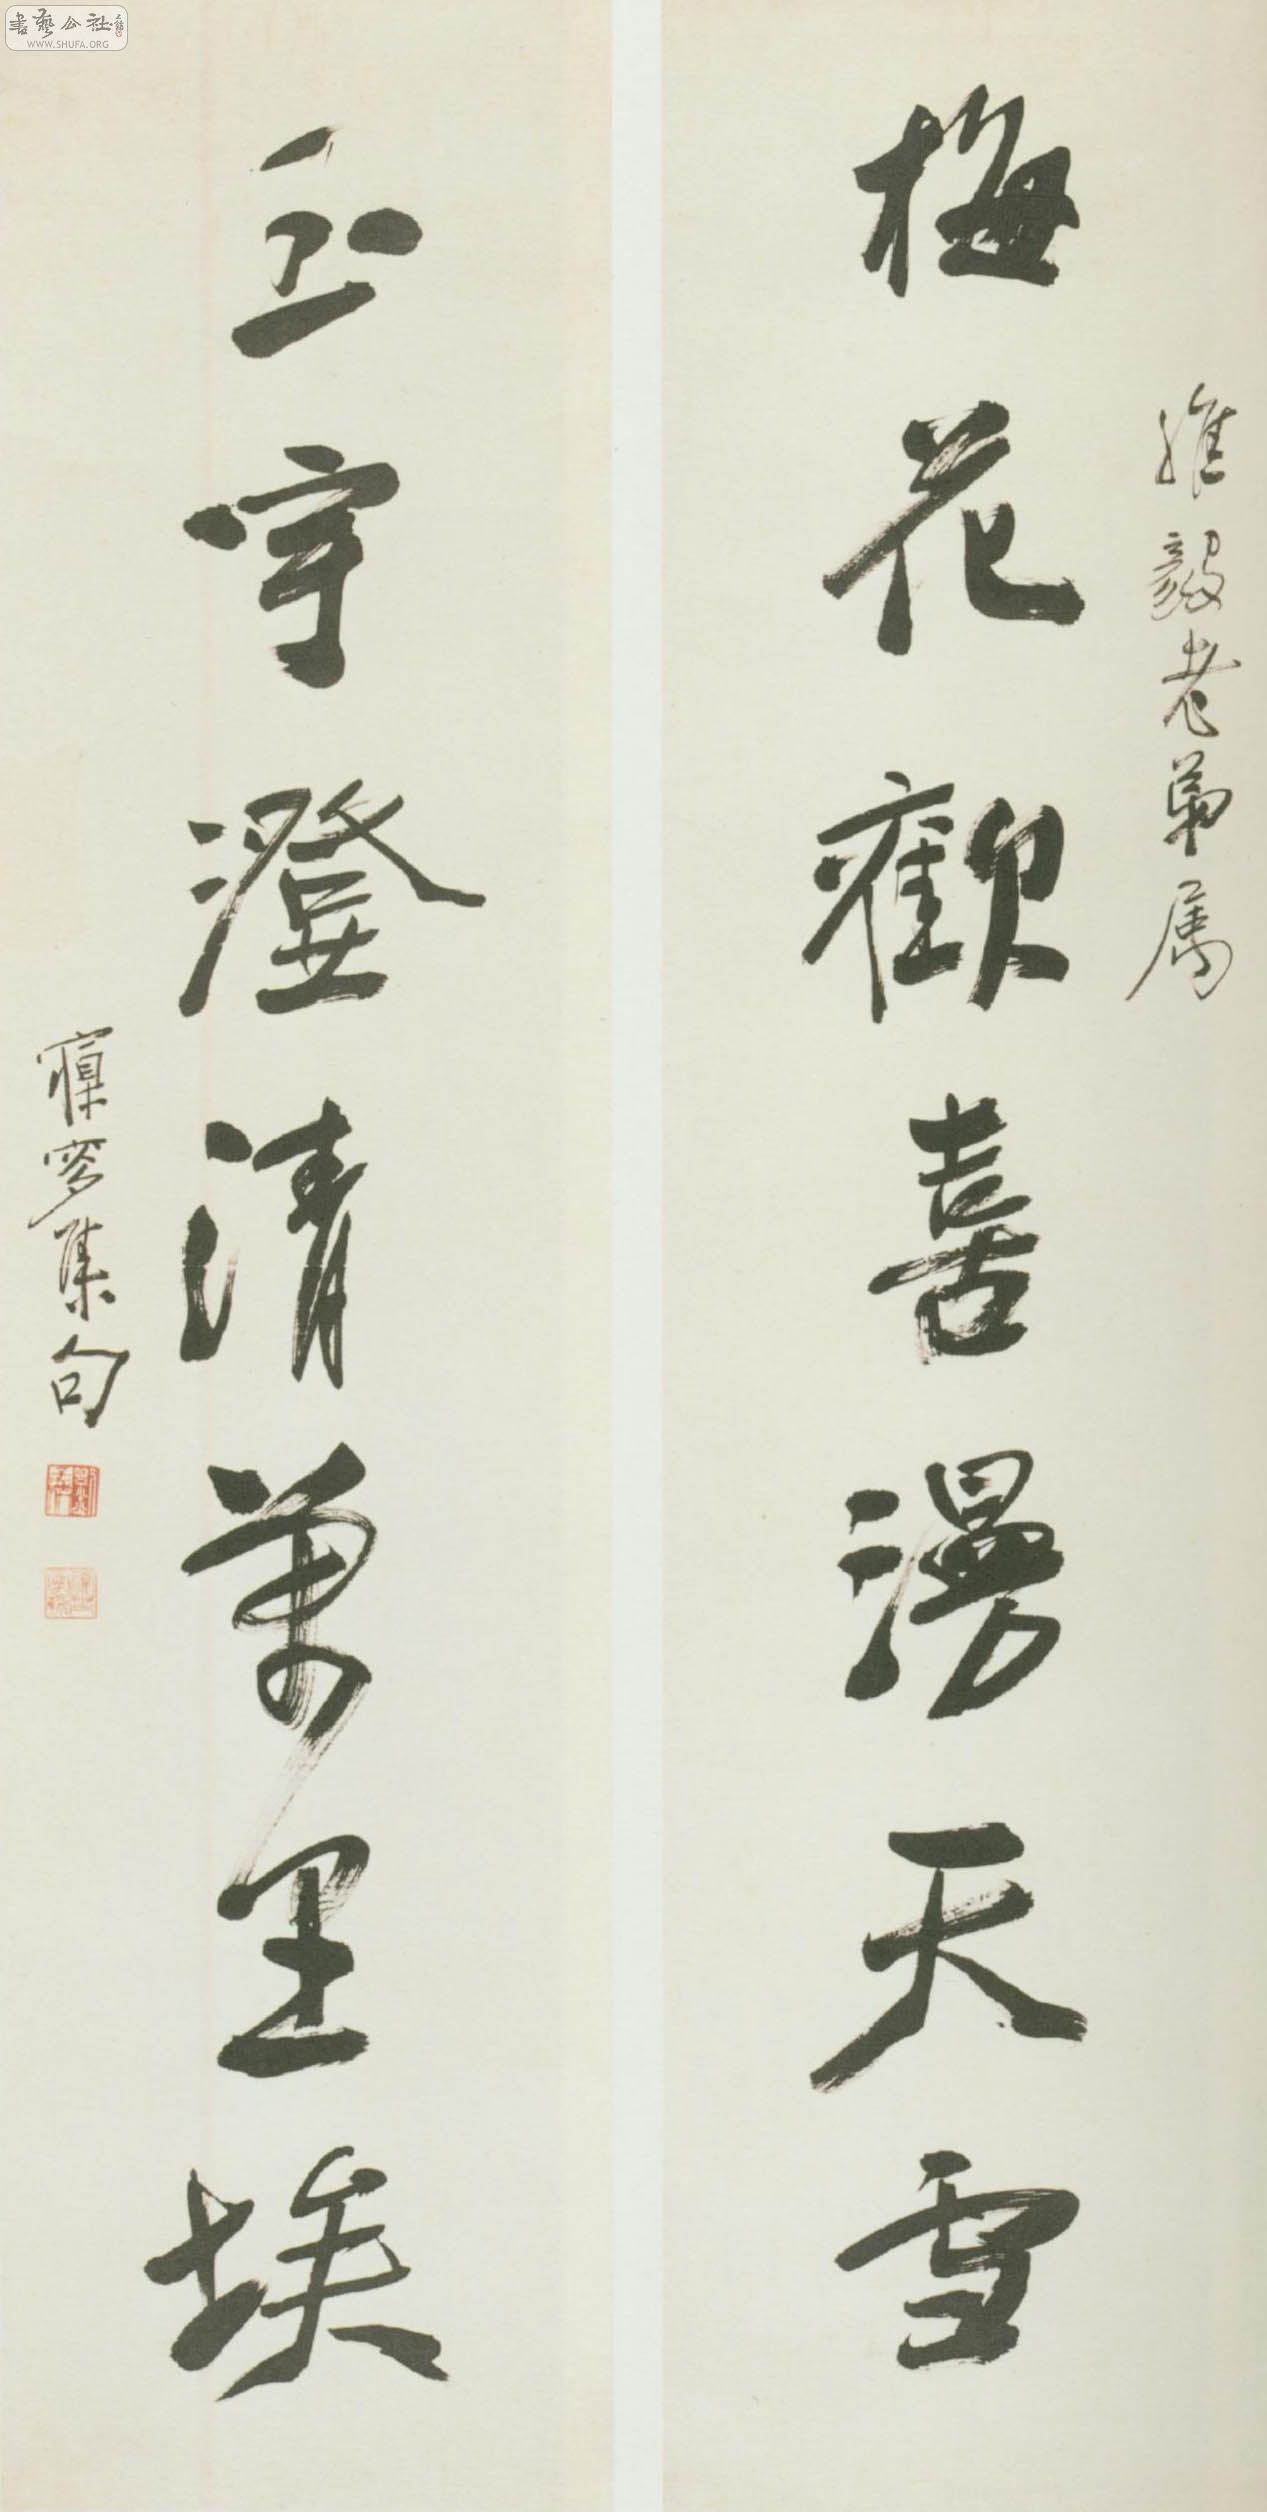 書藝公社
WWW.SHUFA.ORG
維毅老弟屬
梅花歡喜漫天雪
玉宇澄清萬里埃
寱叜集句